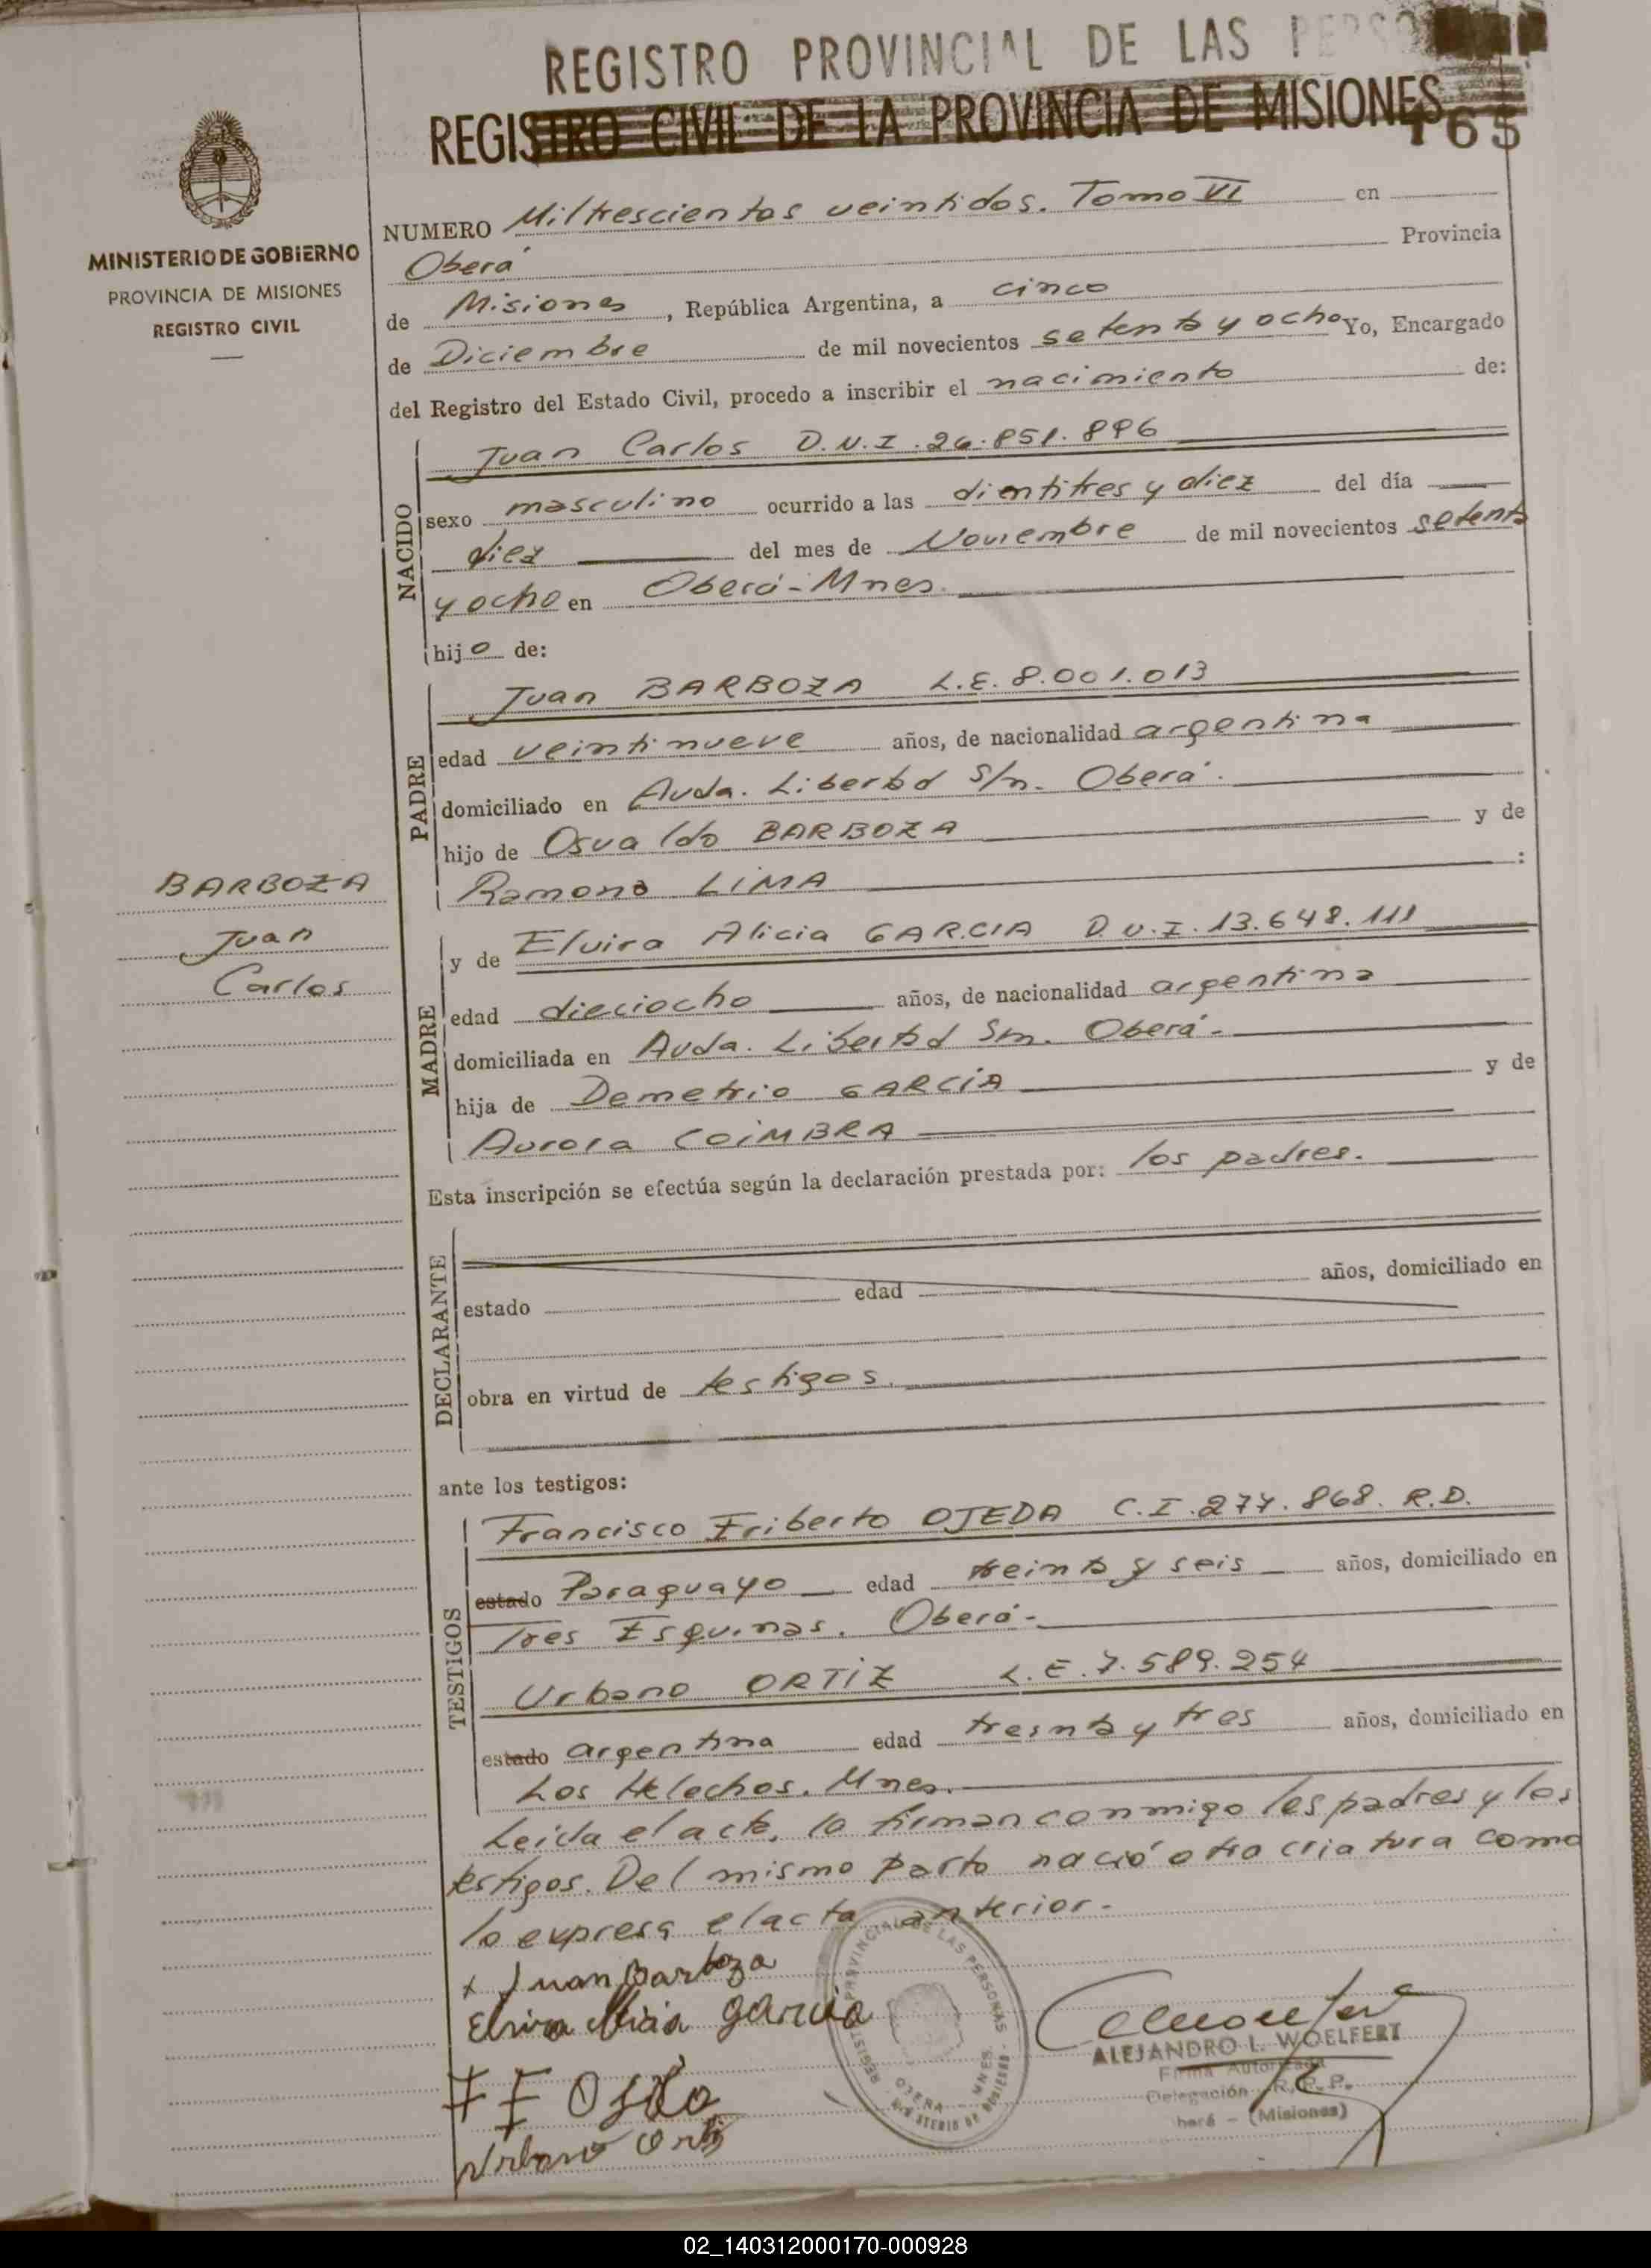 REGISTRO PROVINCIAL DE LAS PERSO
REGISTRO CIVIL DE LA PROVINCIA DE MISIONES
165
MINISTERIO DE GOBIERNO
PROVINCIA DE MISIONES
REGISTRO CIVIL
NUMERO Miltrescientos veintidos. Tomo VI en
Oberá Provincia
de Misiones, República Argentina, a cinco
de Diciembre de mil novecientos setenta y ocho Yo, Encargado
del Registro del Estado Civil, procedo a inscribir el nacimiento de:
NACIDO
Juan Carlos D.N.I. 26.851.896
sexo masculino ocurrido a las dientitres y diez del día
diez del mes de Noviembre de mil novecientos setenta
y ocho en Oberá-Mnes.
hijo de:
PADRE
Juan BARBOZA L.E. 8.001.013
edad veintinueve años, de nacionalidad argentina
domiciliado en Avda. Libertad s/n. Oberá.
hijo de Osvaldo BARBOZA y de
Ramona LIMA :
BARBOZA
Juan
Carlos
MADRE
y de Elvira Alicia GARCIA D.N.I. 13.648.111
edad dieciocho años, de nacionalidad argentina
domiciliada en Avda. Libertad Sn. Oberá-
hija de Demetrio GARCÍA y de
Aurora COIMBRA
Esta inscripción se efectúa según la declaración prestada por: los padres.
DECLARANTE
estado edad años, domiciliado en
obra en virtud de testigos.
ante los testigos:
TESTIGOS
Francisco Eriberto OJEDA C.I. 277.868. R.D.
estado Paraguayo edad treinta y seis años, domiciliado en
Tres Esquinas. Oberá-
Urbano ORTIZ L.E. 7.589.254
estado argentina edad treinta y tres años, domiciliado en
Los Helechos. Mnes.
Leida el acta, la firman conmigo los padres y los
testigos. Del mismo parto nació otra criatura como
lo expresa el acta anterior.-
x Juan Barboza
Elvira Alicia garcia
F E Ojeda
Urbano Ortiz
REGISTRO PROVINCIAL DE LAS PERSONAS
OBERA - MNES.
MINISTERIO DE GOBIERNO
ALEJANDRO L. WOELFERT
Firma Autorizada
Delegación R. P. P.
berá - (Misiones)
02_140312000170-000928